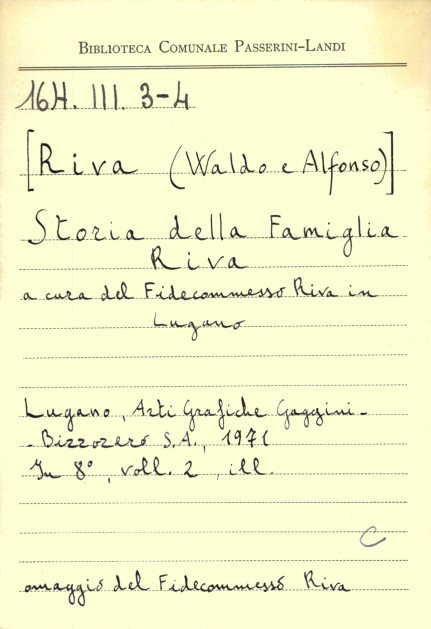 BIBLIOTECA COMUNALE PASSERINI-LANDI
16H. III. 3-4
[Riva (Waldo e Alfonso)]
Storia della Famiglia
Riva
a cura del Fidecommesso Riva in
Lugano
Lugano, Arti Grafiche Gaggini-
-Bizzozero S.A., 1971
In 8°, voll. 2, ill.
C
omaggio del Fidecommesso Riva